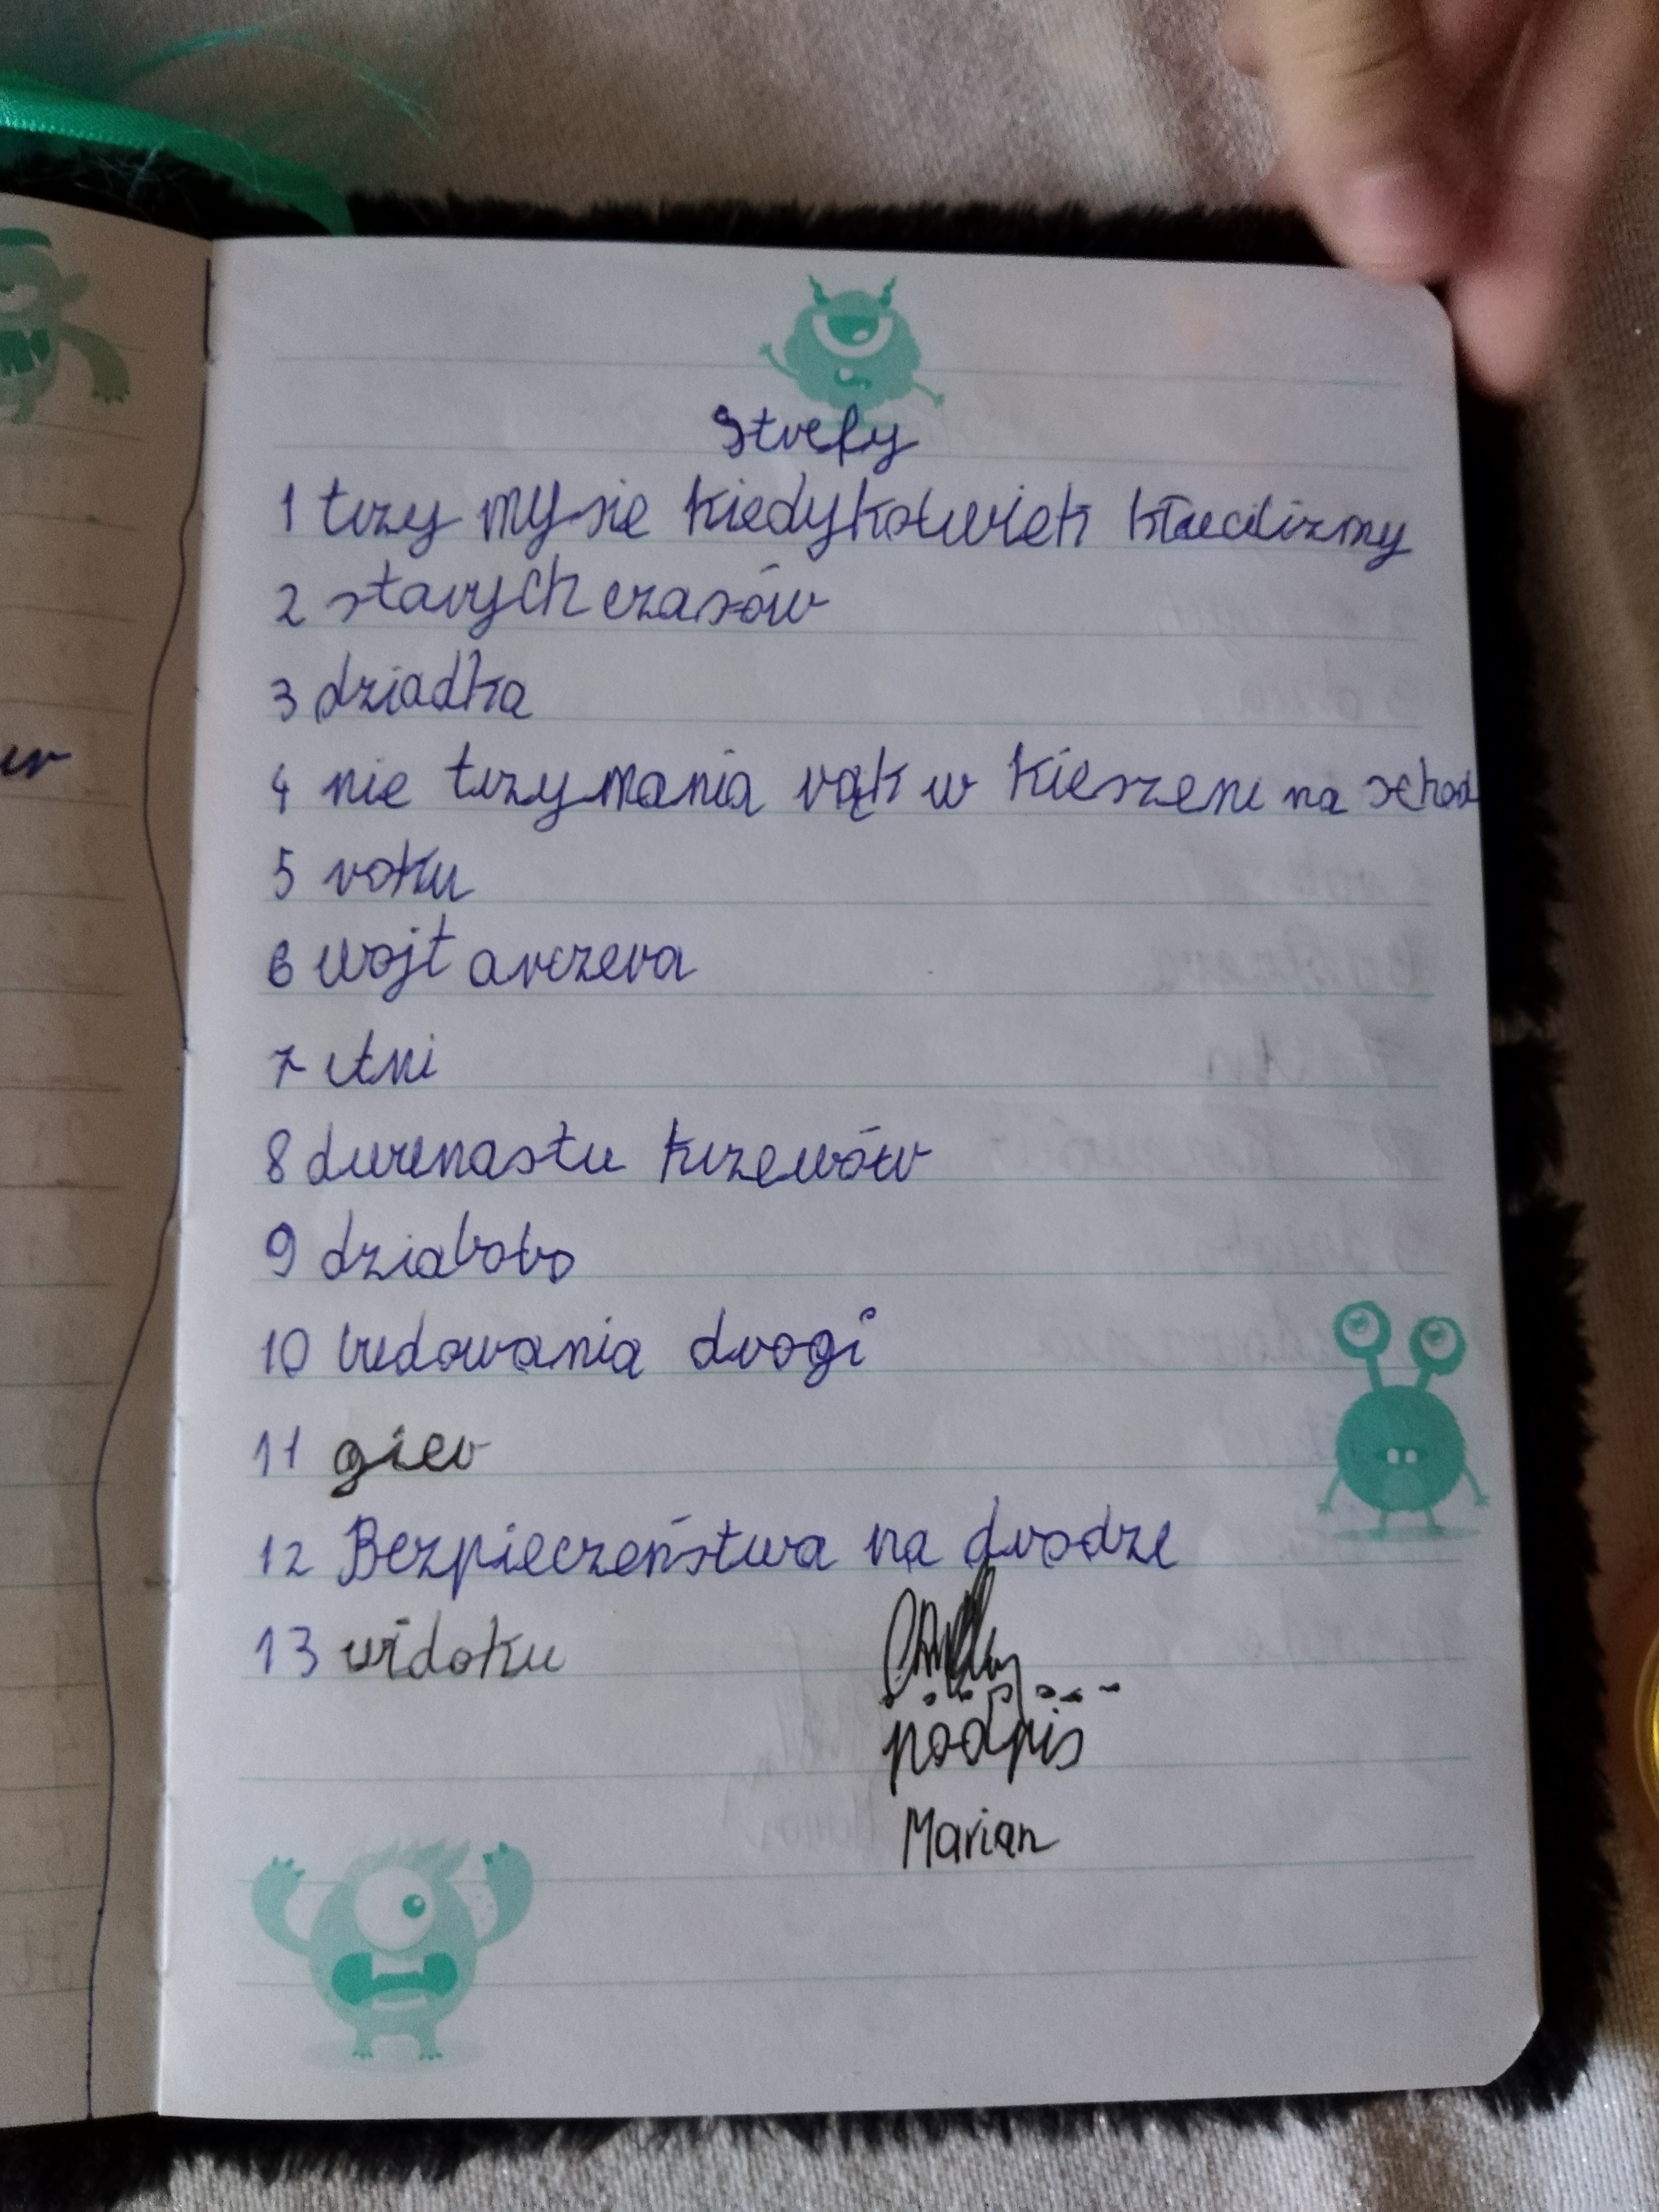 Strefy
1 trzy my sie kiedykolwiek kłucilizmy
2 starych czasów
3 dziadka
4 nie trzymania rąk w kieszeni na schod
5 roku
6 wojt arczera
7 utni
8 dwunastu krzewów
9 dziabobo
10 budowania drogi
11 gier
12 Bezpieczeństwa na drodze
13 widoku
podpis
Marian